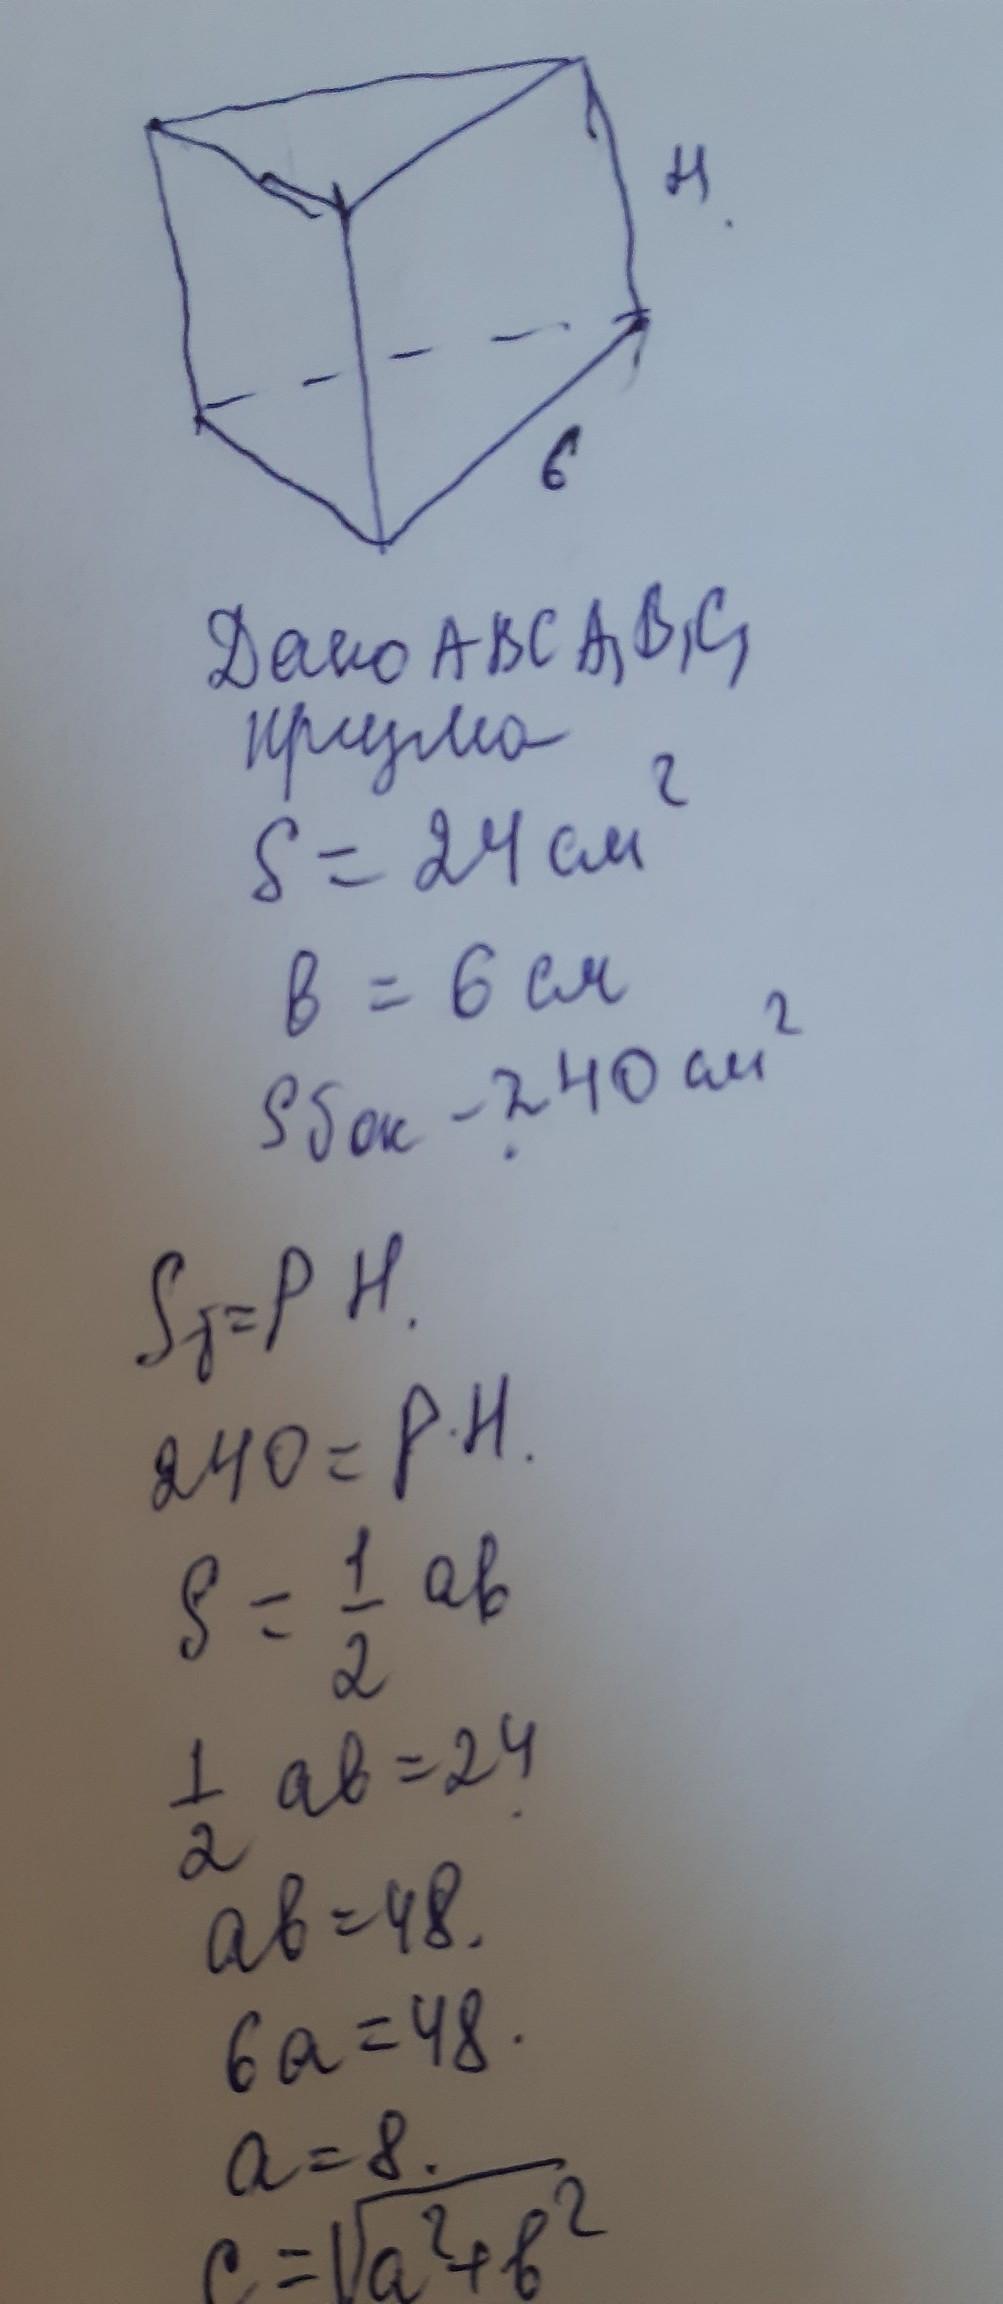 H.
6
Дано ABCA₁B₁C₁
призма
S = 24 см²
в = 6 см
Sбок - 240 см²
Sб = P H.
240 = P·H.
S = 1/2 ав
1/2 ав = 24
ав = 48.
6а = 48.
а = 8.
c = √a²+b²